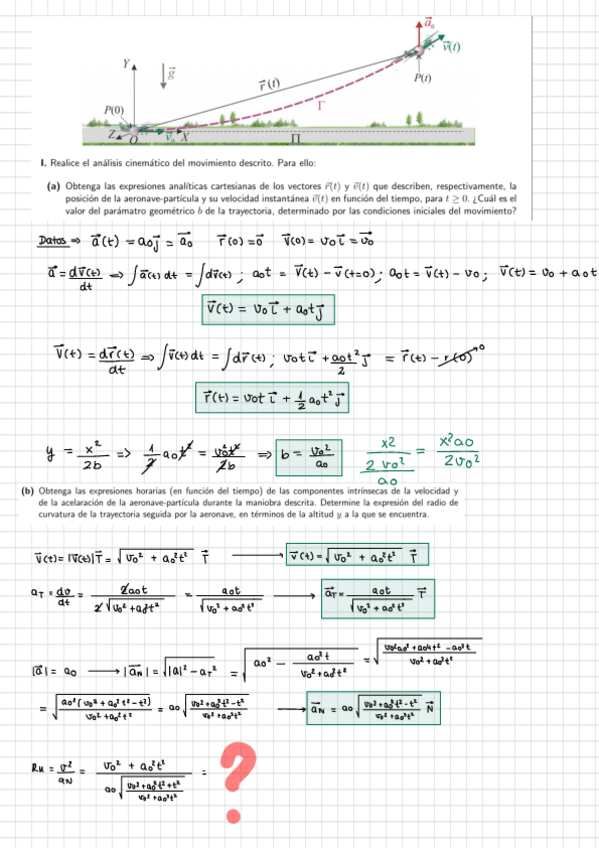 Y
g⃗
r⃗(t)
a⃗₀
v⃗(t)
P(t)
Γ
P(0)
Z O v⃗₀ X
Π
I. Realice el análisis cinemático del movimiento descrito. Para ello:
(a) Obtenga las expresiones analíticas cartesianas de los vectores r⃗(t) y v⃗(t) que describen, respectivamente, la
posición de la aeronave-partícula y su velocidad instantánea v⃗(t) en función del tiempo, para t ≥ 0. ¿Cuál es el
valor del parámatro geométrico b de la trayectoria, determinado por las condiciones iniciales del movimiento?
Datos ⇒ a⃗(t) = a₀j⃗ = a⃗₀ r⃗(0) = 0⃗ v⃗(0) = v₀i⃗ = v⃗₀
a⃗ = dv⃗(t)/dt ⇒ ∫a⃗(t) dt = ∫dv⃗(t) ; a₀t = v⃗(t) − v⃗(t=0) ; a₀t = v⃗(t) − v₀ ; v⃗(t) = v₀ + a₀t
v⃗(t) = v₀i⃗ + a₀tj⃗
v⃗(t) = dr⃗(t)/dt ⇒ ∫v⃗(t) dt = ∫dr⃗(t) ; v₀ti⃗ + a₀t²/2 j⃗ = r⃗(t) − r(0) 0
r⃗(t) = v₀t i⃗ + 1/2 a₀t² j⃗
y = x²/2b ⇒ 1/2 a₀t² = v₀²t²/2b ⇒ b = v₀²/a₀ x2/(2 v₀²/a₀) = x²a₀/2v₀²
(b) Obtenga las expresiones horarias (en función del tiempo) de las componentes intrínsecas de la velocidad y
de la acelaración de la aeronave-partícula durante la maniobra descrita. Determine la expresión del radio de
curvatura de la trayectoria seguida por la aeronave, en términos de la altitud y a la que se encuentra.
v⃗(t) = |v⃗(t)|T⃗ = √(v₀² + a₀²t²) T⃗ ⟶ v⃗(t) = √(v₀² + a₀²t²) T⃗
a_T = dv/dt = 2a₀t/2√(v₀² + a₀²t²) = a₀t/√(v₀² + a₀²t²) ⟶ a⃗_T = a₀t/√(v₀² + a₀²t²) T⃗
|a⃗| = a₀ ⟶ |a⃗_N| = √(|a|² − a_T²) = √(a₀² − a₀²t/(v₀² + a₀²t²)) = √((v₀²a₀² + a₀4t² − a₀²t)/(v₀² + a₀²t²))
= √(a₀²(v₀² + a₀²t² − t²)/(v₀² + a₀²t²)) = a₀ √((v₀² + a₀²t² − t²)/(v₀² + a₀²t²)) ⟶ a⃗_N = a₀ √((v₀² + a₀²t² − t²)/(v₀² + a₀²t²)) N⃗
R_K = v²/a_N = (v₀² + a₀²t²)/(a₀ √((v₀² + a₀²t² + t²)/(v₀² + a₀²t²))) = ?